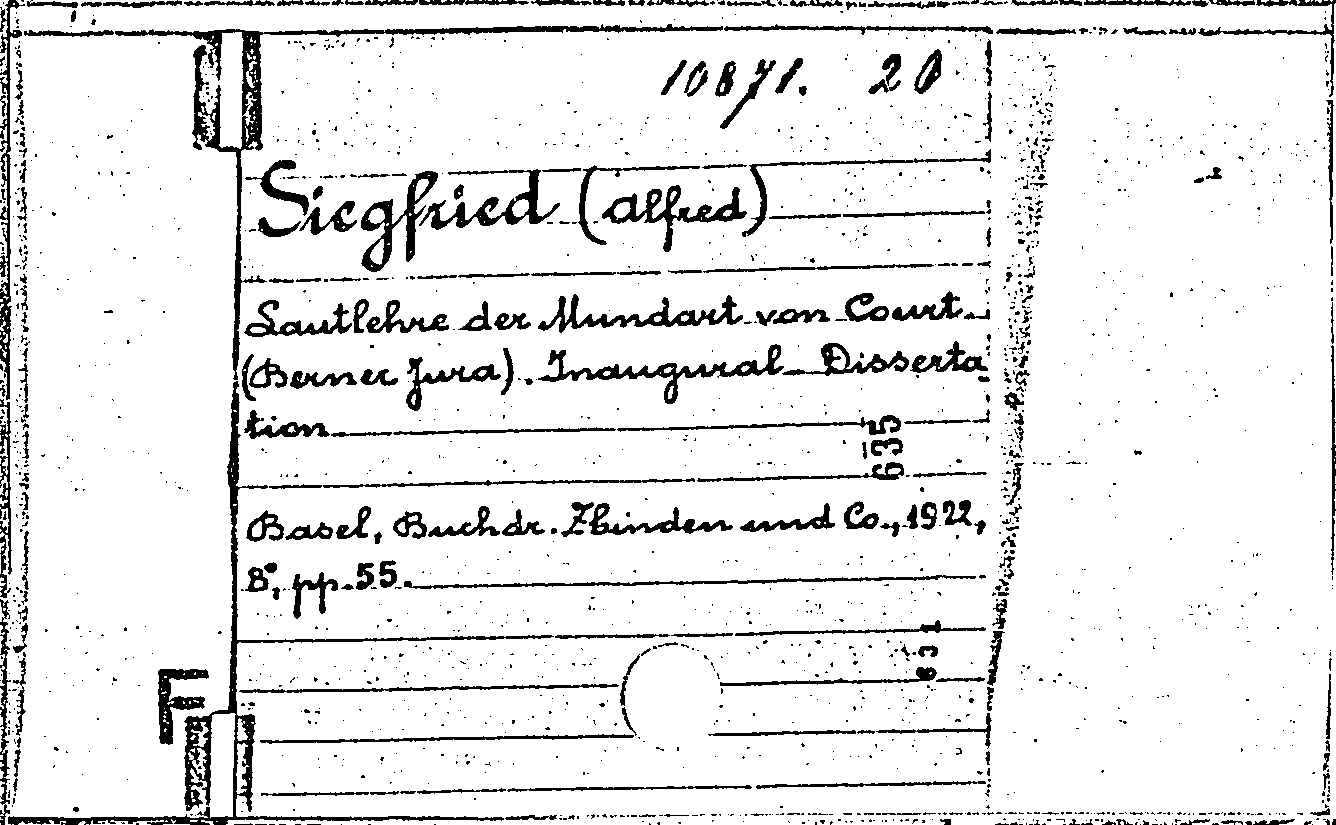 10871. 20
Siegfried (Alfred)
Lautlehre der Mundart von Court.
(Berner Jura). Inaugural-Disserta
tion
635
Basel, Buchdr. Zbinden und Co., 1922,
8°, pp. 55.
631